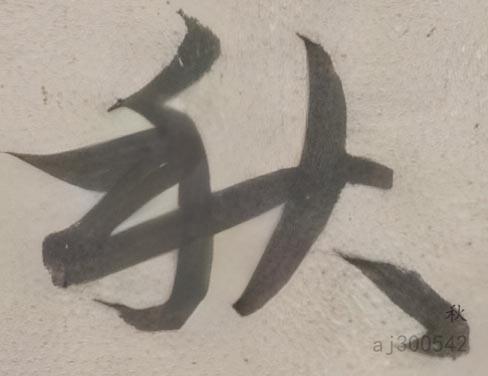 秋
秋
aj300542